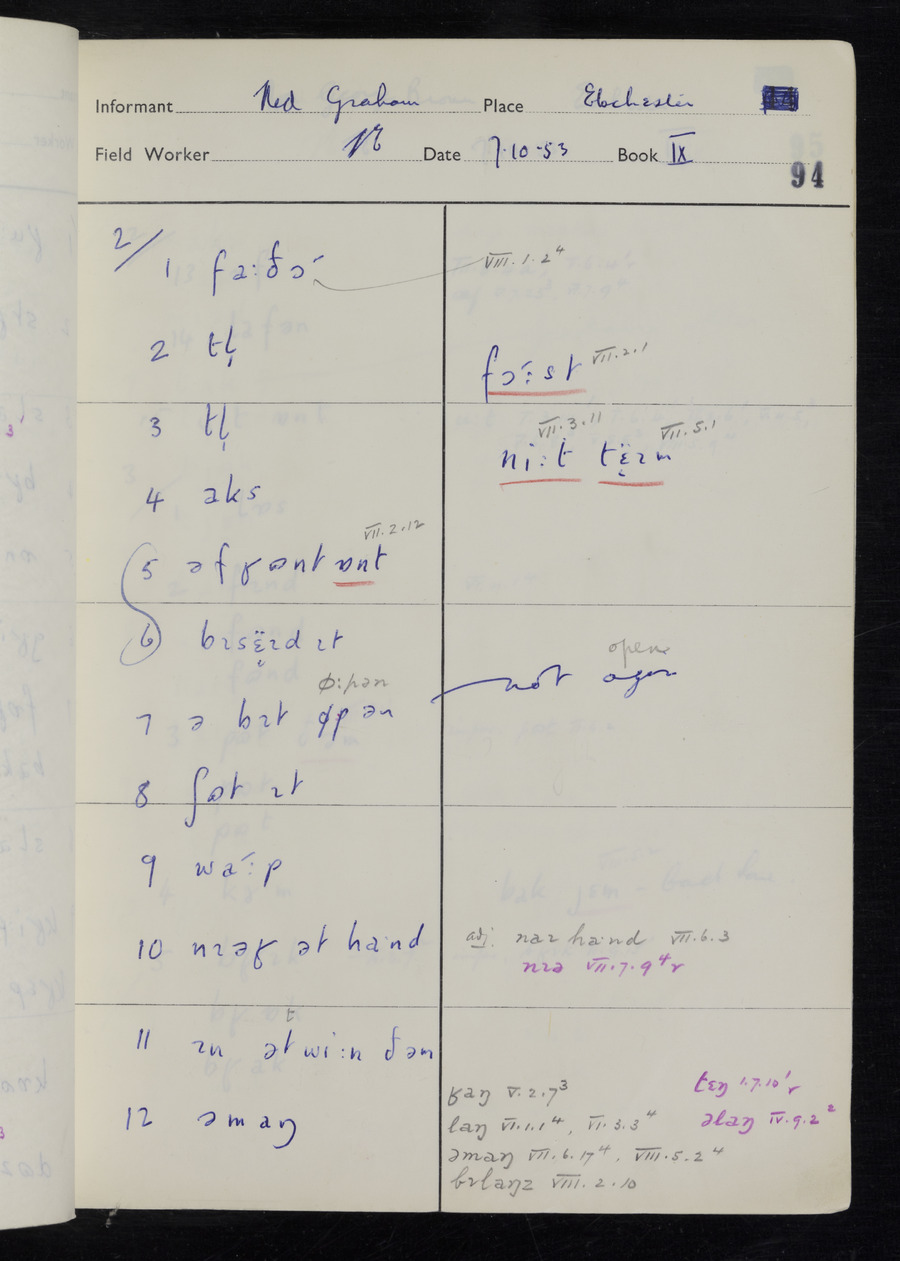 Informant Ned Graham Place Ebchester
Field Worker Date 7·10·53 Book IX
94
2/
1 fa:ðɔ´ VIII.1.2⁴
2 tl̩
fɔ´:st VII.2.1
3 tl̩
VII.3.11 VII.5.1
ni:t
4 aks
VII.2.12
5 əfʁɒnt ɒnt
6
open
ø:pən
not agen
7 ə bɪt øpən
8 ʃɒt ɪt
9 wa´:p
10 nɪəʁ ət hand adj. naɪ hand VII.6.3
nɪə VII.7.9⁴r
t
11 ɪn ət wi:n ðəm
ʁaŋ V.2.7³ tɛŋ 1.7.10'r
12 əmaŋ
laŋ VI.1.1⁴, VI.3.3⁴ əlaŋ IV.9.2²
əmaŋ VII.6.17⁴, VIII.5.2⁴
bɪlaŋz VIII.2.10